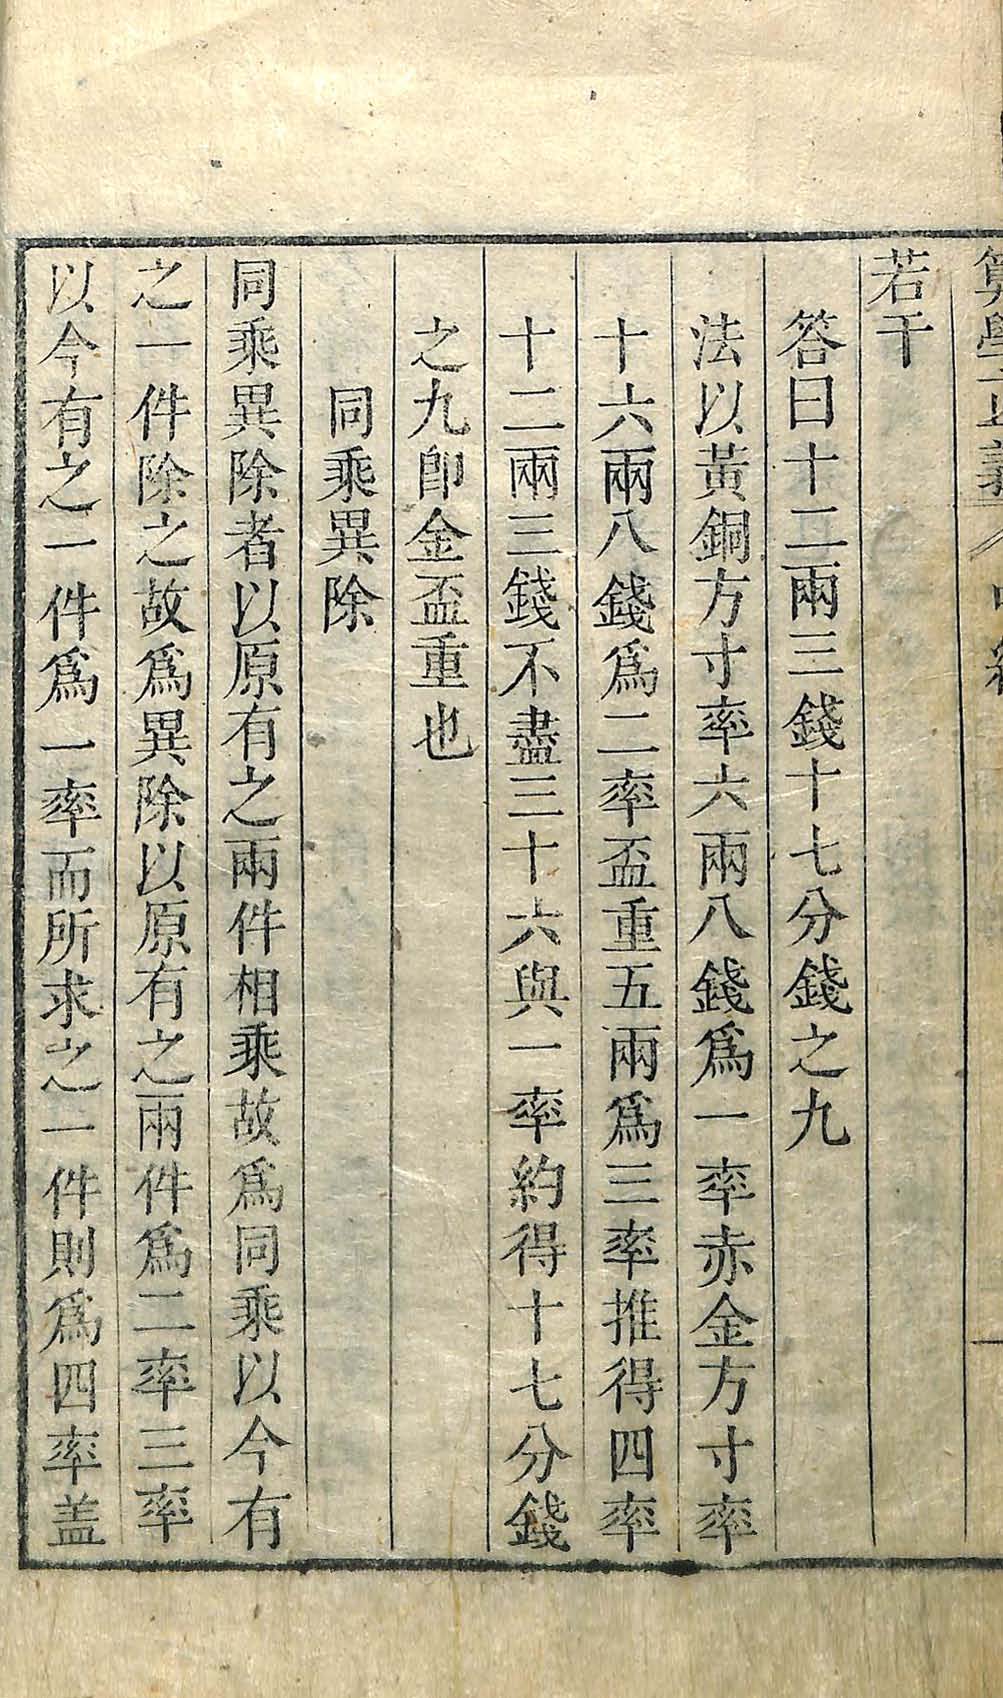 算學正義
若干
答曰十二兩三錢十七分錢之九
法以黃銅方寸率六兩八錢爲一率赤金方寸率
十六兩八錢爲二率盃重五兩爲三率推得四率
十二兩三錢不盡三十六與一率約得十七分錢
之九卽金盃重也
同乘異除
同乘異除者以原有之兩件相乘故爲同乘以今有
之一件除之故爲異除以原有之兩件爲二率三率
以今有之一件爲一率而所求之一件則爲四率盖